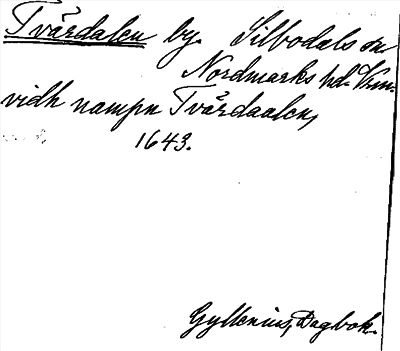 Tvärdalen by. Silbodals sn
Nordmarks hd. Vrm.
vidh nampn Tvärdaalen,
1643.
Gyllenius, Dagbok.